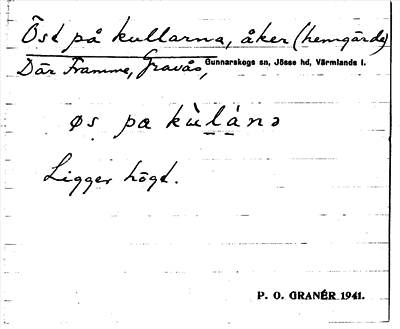 Öst på kullarna, åker (hemgärde)
Där Framme, Gravås, Gunnarskogs sn, Jösse hd, Värmlands l.
øs pa kùlánə
Ligger högt.
P. O. GRANÉR 1941.